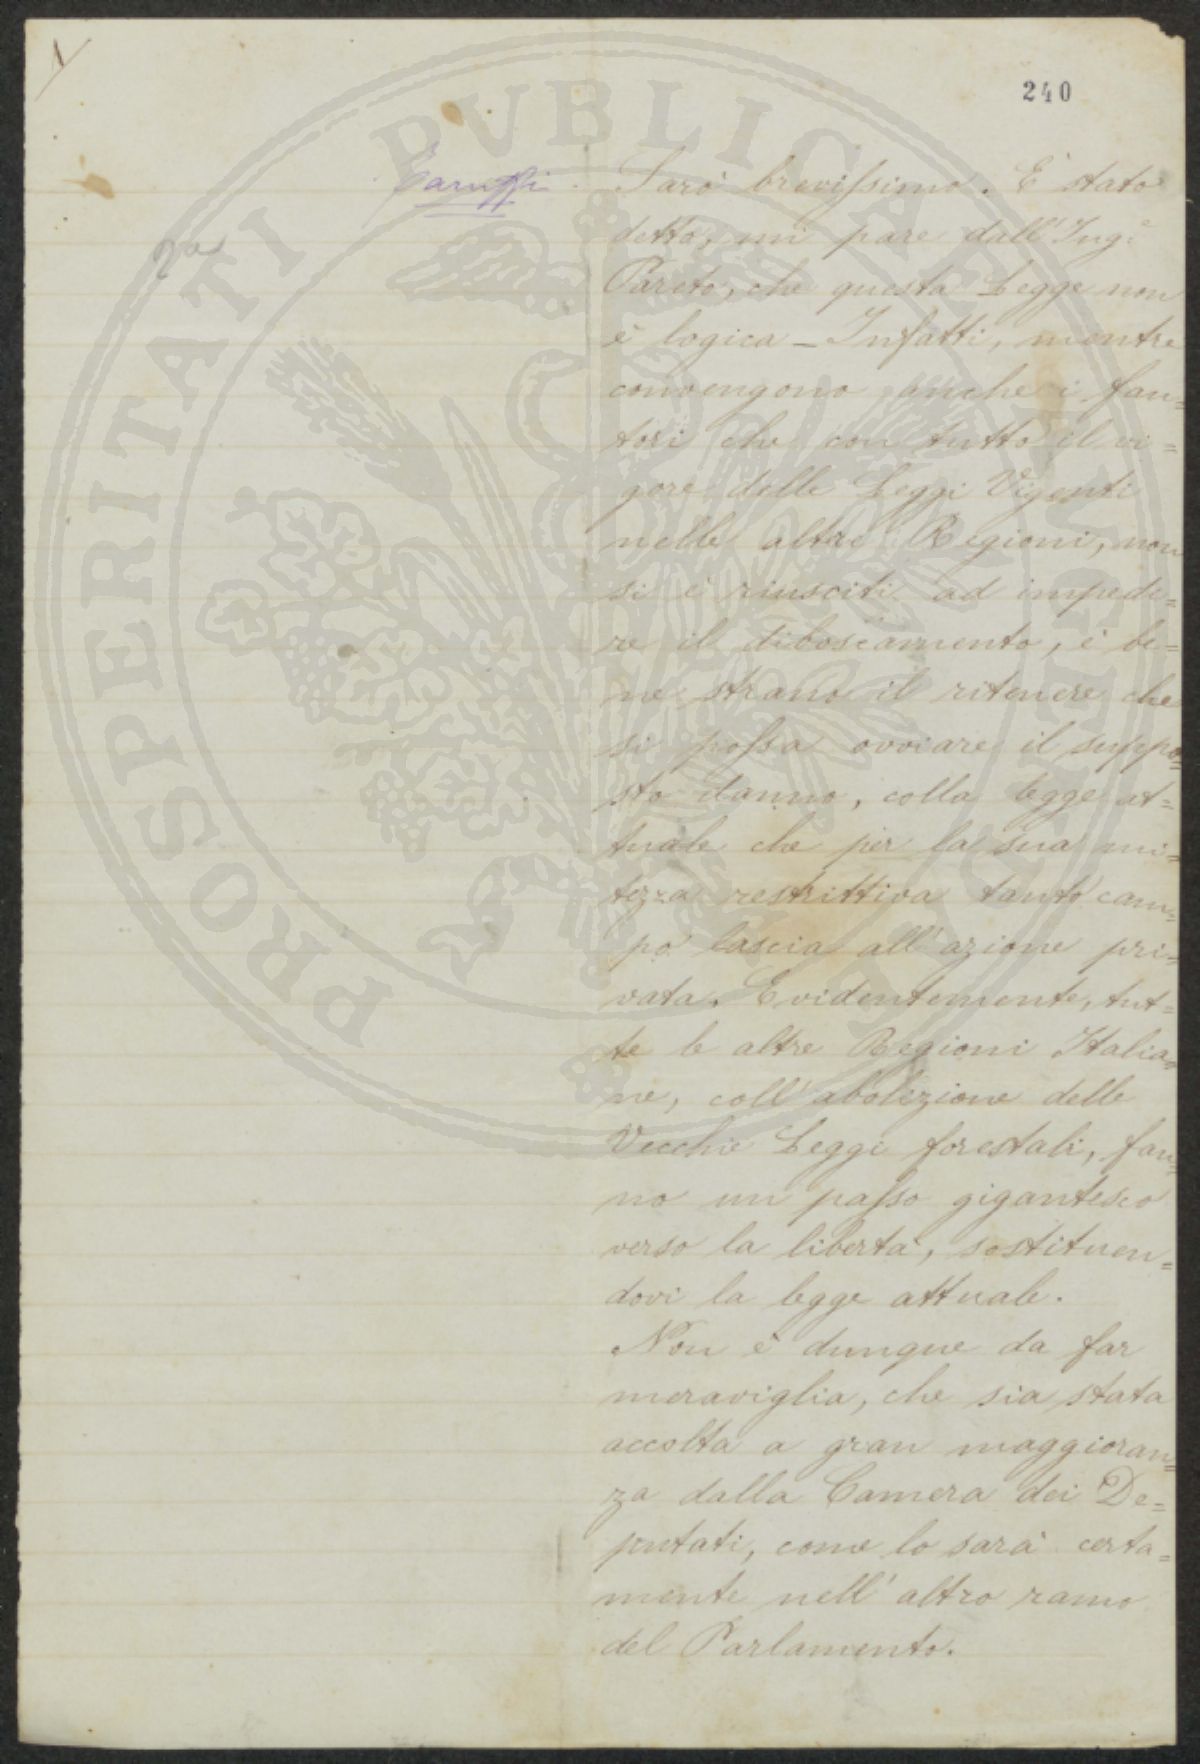 1
240
Taruffi.
2a
Sarò brevissimo. È stato
detto, mi pare dall'Ing.e
Pareto, che questa Legge non
è logica – Infatti, mentre
convengono anche i fau=
tori che con tutto il vi=
gore delle Leggi Vigenti
nelle altre Regioni, non
si è riusciti ad impede=
re il diboscamento, è be=
ne strano il ritenere che
si possa ovviare il suppo=
sto danno, colla legge at=
tuale che per la sua mi=
tezza restrittiva tanto cam=
po lascia all'azione pri=
vata. Evidentemente, tut=
te le altre Regioni Italia=
ne, coll'abolizione delle
Vecchie Leggi forestali, fan=
no un passo gigantesco
verso la libertà, sostituen=
dovi la legge attuale.
Non è dunque da far
meraviglia, che sia stata
accolta a gran maggioran=
za dalla Camera dei De=
putati, come lo sarà certa=
mente nell'altro ramo
del Parlamento.
PROSPERITATI PUBLICAE AUGENDAE